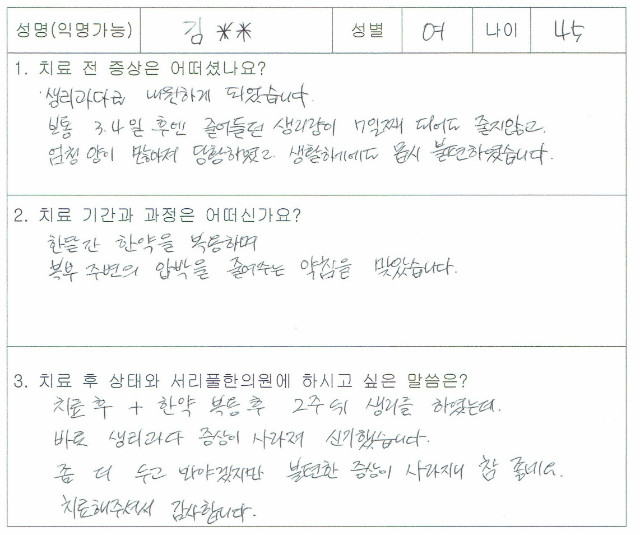 성명(익명가능) 김 ** 성별 여 나이 45
1. 치료 전 증상은 어떠셨나요?
생리과다로 내원하게 되었습니다.
보통 3.4일 후엔 줄어들던 생리량이 7일째 되어도 줄지않고
엄청 양이 많아져 당황하였고 생활하기에도 몹시 불편하였습니다.
2. 치료 기간과 과정은 어떠신가요?
한달간 한약을 복용하며
복부 주변의 압박을 줄여주는 약침을 맞았습니다.
3. 치료 후 상태와 서리풀한의원에 하시고 싶은 말씀은?
치료 후 + 한약 복용 후 2주 뒤 생리를 하였는데.
바로 생리과다 증상이 사라져 신기했습니다.
좀 더 두고 봐야겠지만 불편한 증상이 사라지니 참 좋네요.
치료해주셔서 감사합니다.